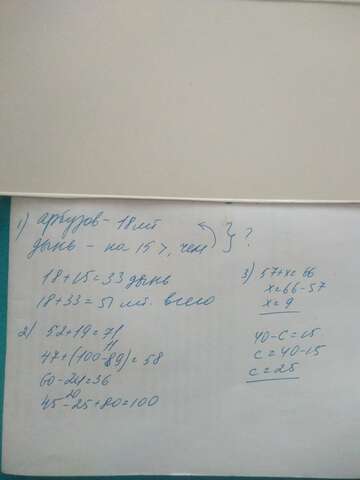 1) Арбузов - 18 шт
Дынь - на 15 >, чем } ?
18+15=33 дынь
18+33=51 шт. всего
2) 52+19=71
11
47+(100-89)=58
60-24=36
20
45-25+80=100
3) 57+x=66
x=66-57
x=9
40-c=15
c=40-15
c=25